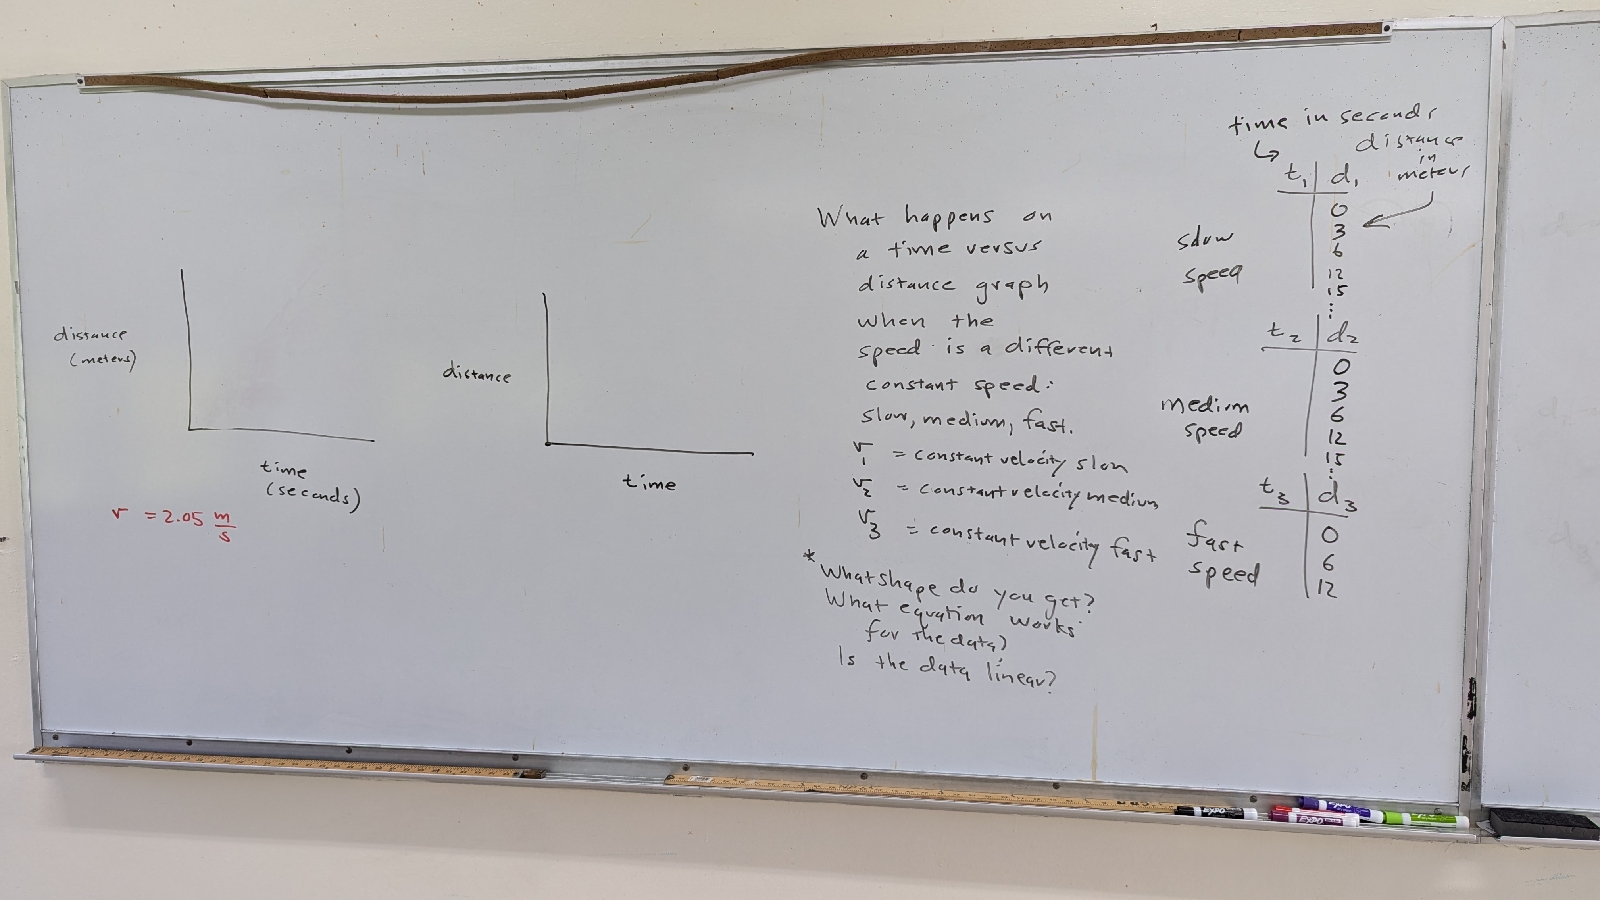 distance
(meters)
time
(seconds)
v = 2.05 m/s
distance
time
What happens on
a time versus
distance graph
when the
speed is a different
constant speed:
slow, medium, fast.
v1 = constant velocity slow
v2 = constant velocity medium
v3 = constant velocity fast
* What shape do you get?
What equation works
for the data?
Is the data linear?
time in seconds
distance
in
meters
t1 d1
0
3
6
12
15
slow
speed
t2 d2
0
3
6
12
15
medium
speed
t3 d3
0
6
12
fast
speed
EXPO
EXPO